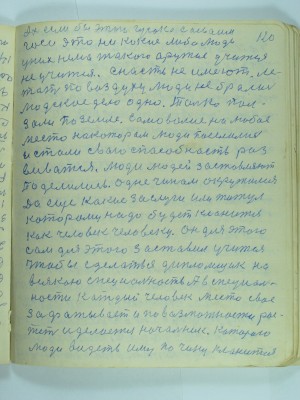 120
Ах если бы этого
гаси это не какие либо люди
у них нема такого оружье учатся
не учится. Снасти не имеют. ле-
тать по воздуху люди не брались
людское дело одно. Только пол-
зали по земле самовольно на любое
место на котором люди поселились
и стали свою способность раз-
вивать. люди людей заставляют
поделились. одне чинам окружился
да еще какие заслуги или титул
которому надо будет кланится
как человек человеку. Он для этого
сам для этого заставил учится
чтобы сделаться дипломщик на
всякою специальность. А в специаль-
ности каждый человек место свое
задатывает и по возможности ра-
тет и делается начальник. Которого
люди видеть ему по чину кланится